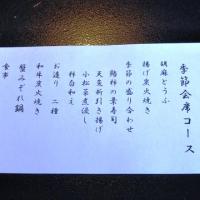 季節会席コース
胡麻とうふ
揚げ炭火焼き
季節の盛り合わせ
鯖柿の葉寿司
天魚新引き揚げ
小松菜煮浸し
柿白和え
お造り 二種
和牛炭火焼き
蟹みぞれ鍋
食事